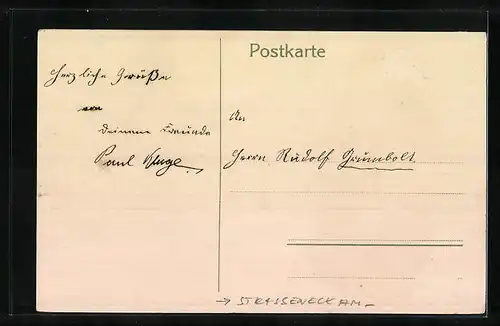 Postkarte
Herzliche Grüße
von
Deinem Freunde
Paul Kluge
An
Herrn Rudolf Grünbolt
→ STRASSENECK AM –